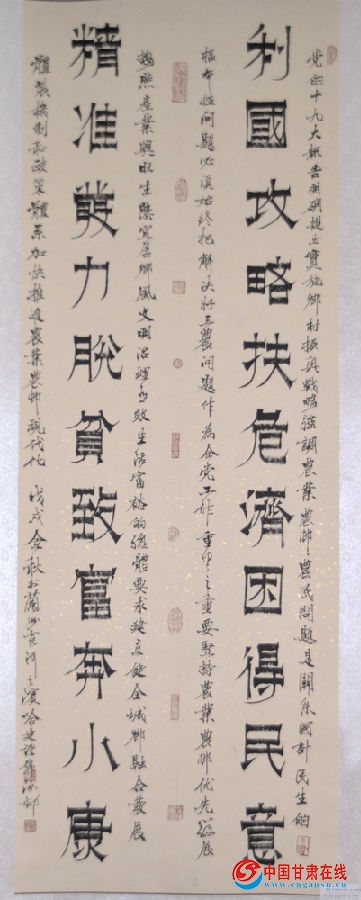 党的十九大報告明确提出實施鄉村振興戰略強調農業農邨農民問題是關系國計民生的
利國攻略扶危濟困得民意
根本性問題必須始終把解决好三農問題作為全党工作重中之重要堅持農業農邨优先發展
按照產業興旺生態宜居鄉風文明治理有效生活富裕的總體要求建立健全城鄉融合發展
精准發力脫貧致富奔小康
體製機制和政策體系加快推進農業農邨現代化 戊戌金秋於蘭州黄河之濱
中国甘肃在线
www.cngansu.cn